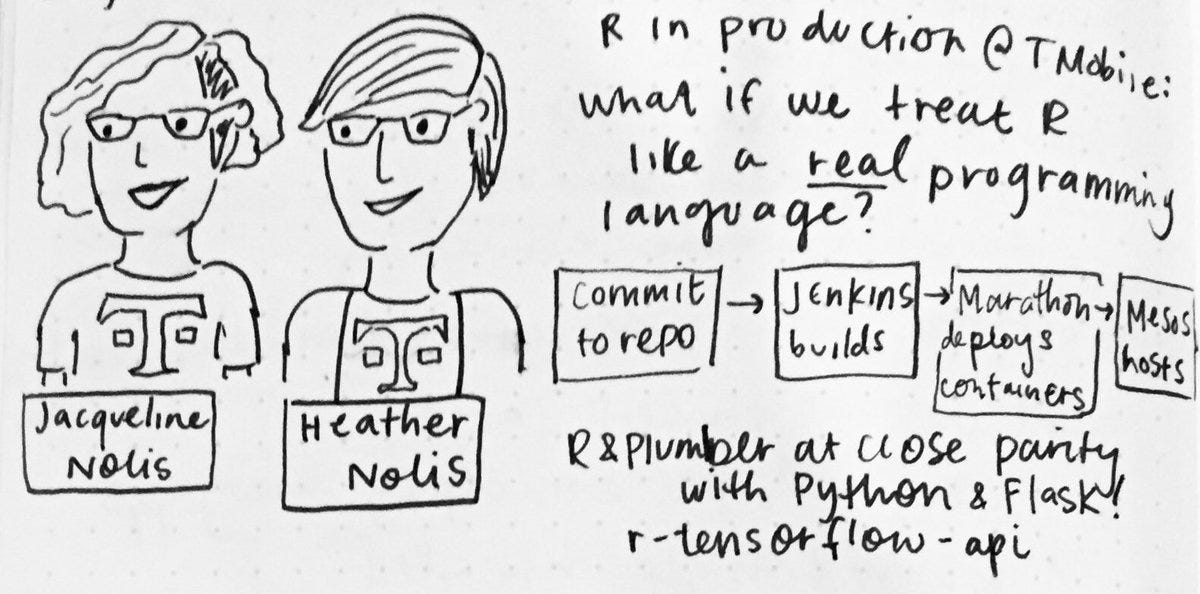 R in production @ TMobile:
what if we treat R
like a real programming
language?
commit
to repo
Jenkins
builds
Marathon
deploys
containers
Mesos
hosts
R & Plumber at close parity
with Python & Flask!
r-tensorflow-api
T
Jacqueline
Nolis
T
Heather
Nolis